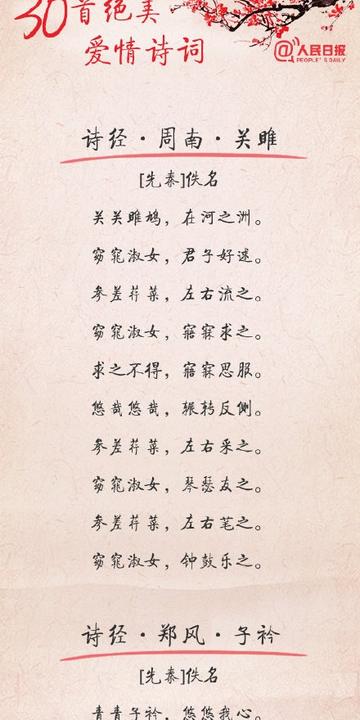 30首绝美
爱情诗词
@人民日报
PEOPLE'S DAILY
诗经·周南·关雎
[先秦]佚名
关关雎鸠，在河之洲。
窈窕淑女，君子好逑。
参差荇菜，左右流之。
窈窕淑女，寤寐求之。
求之不得，寤寐思服。
悠哉悠哉，辗转反侧。
参差荇菜，左右采之。
窈窕淑女，琴瑟友之。
参差荇菜，左右芼之。
窈窕淑女，钟鼓乐之。
诗经·郑风·子衿
[先秦]佚名
青青子衿，悠悠我心。